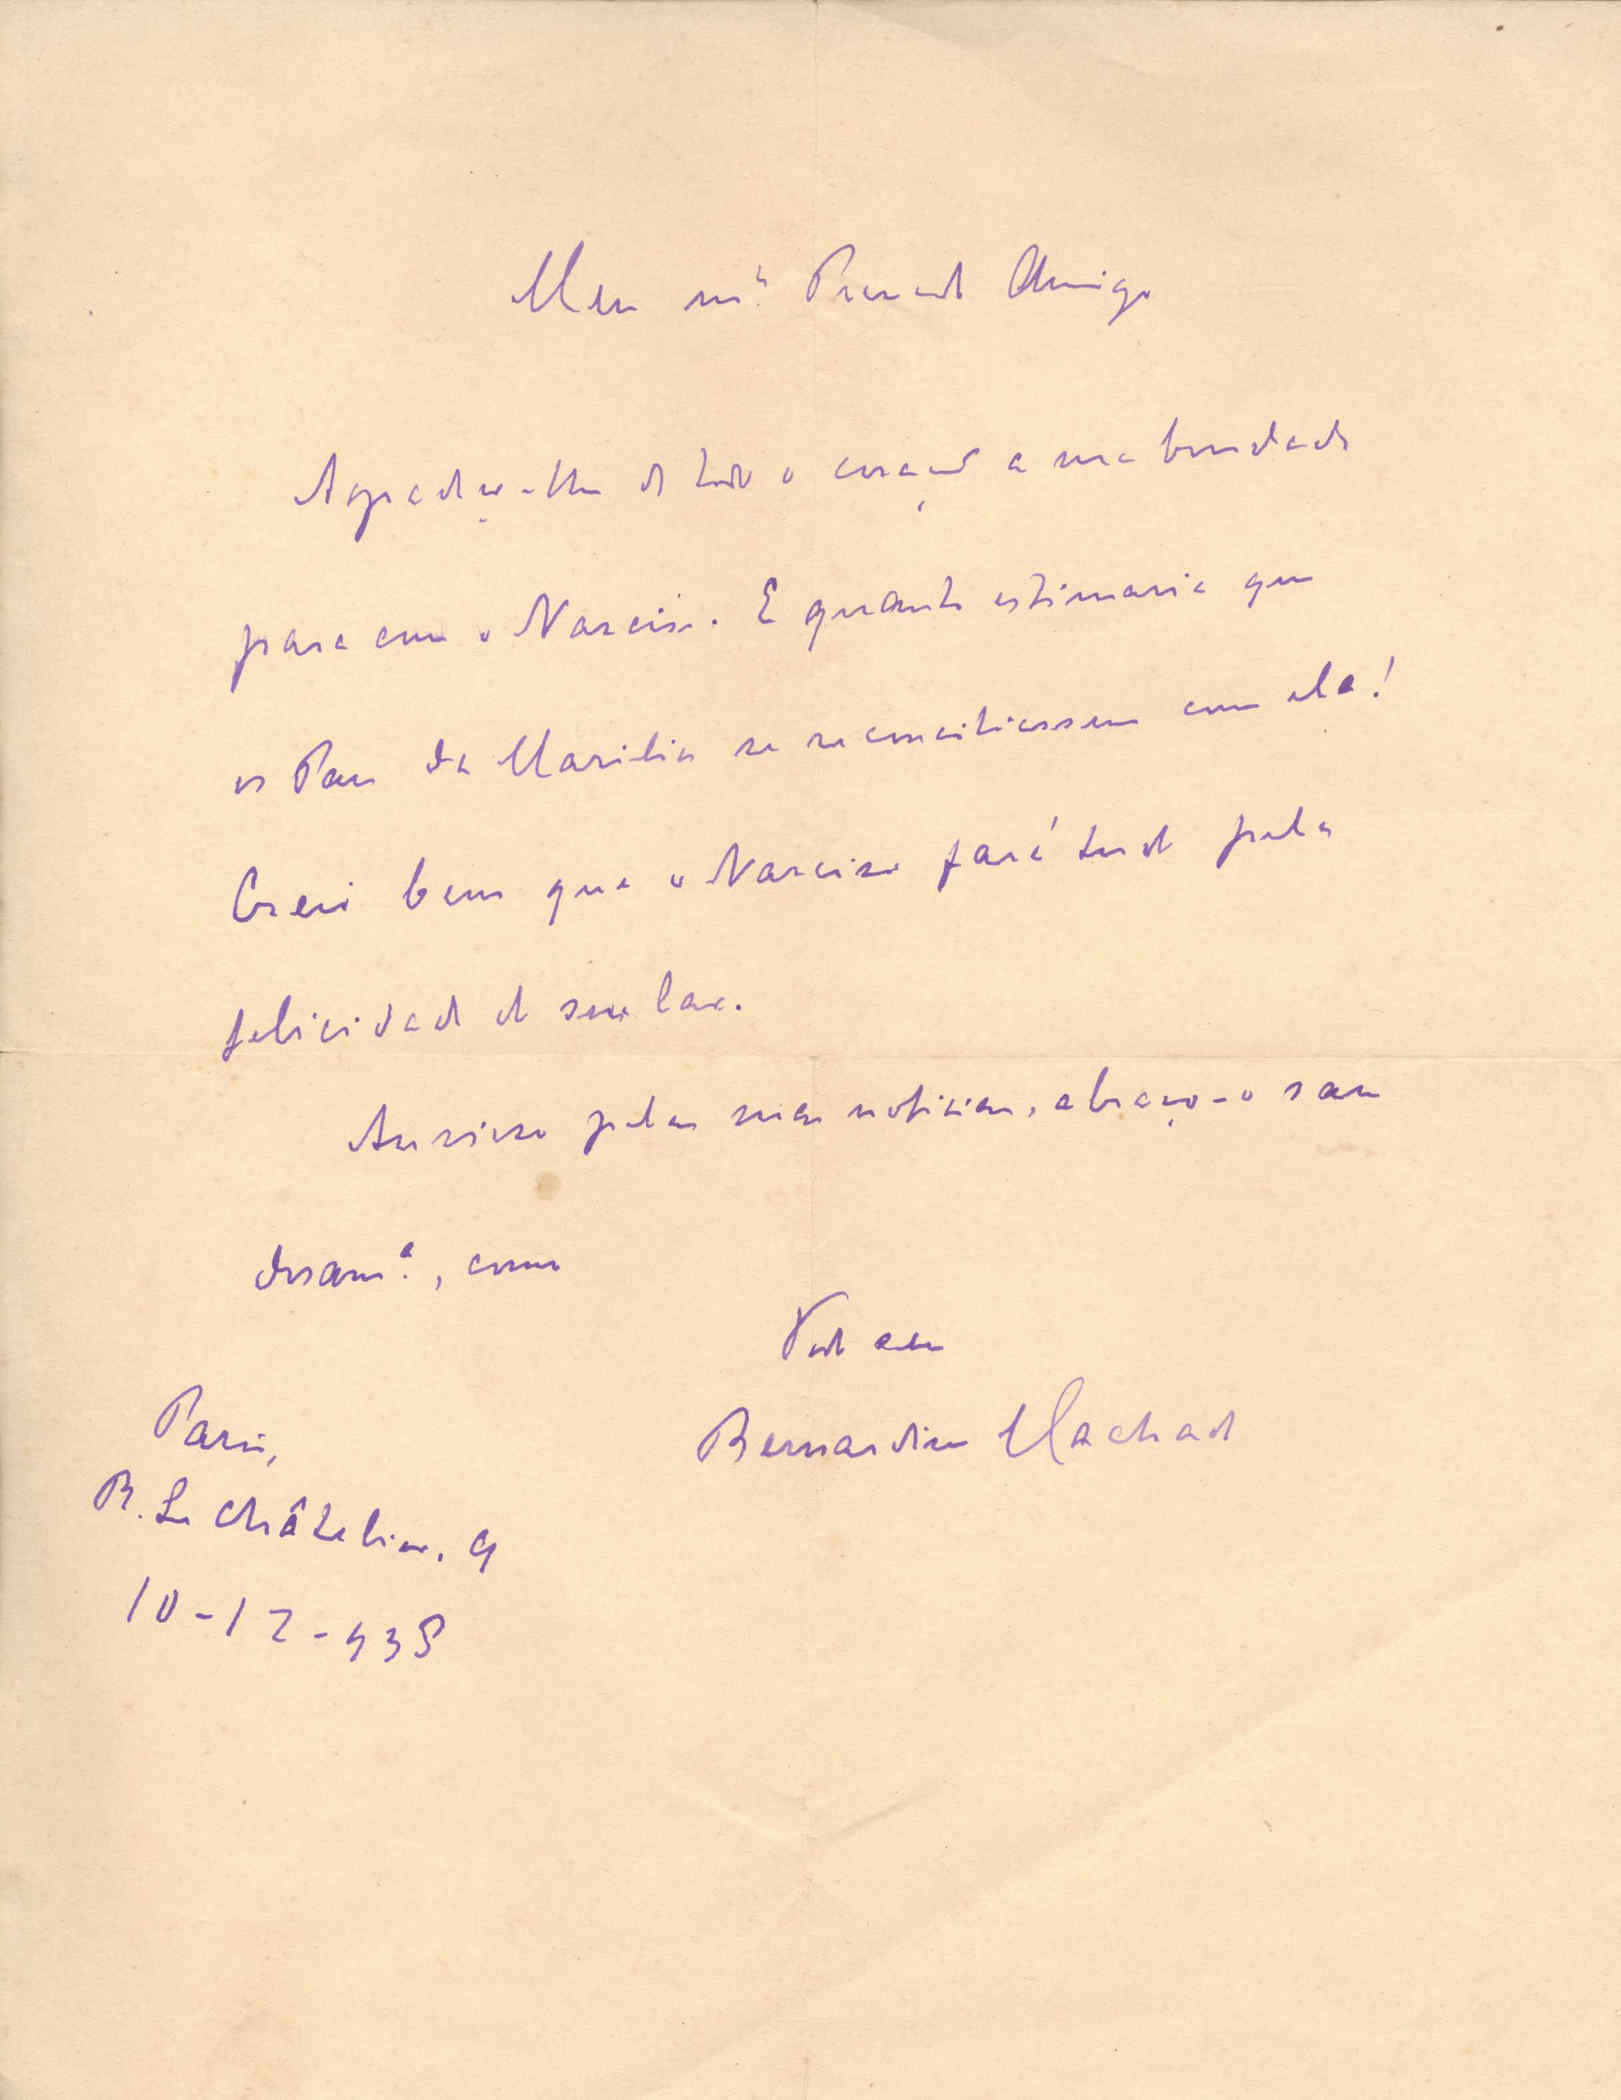 Meu m.to Prezado Amigo
Agradeço-lhe de todo o coração a sua bondade
para com o Narciso. E quanto estimaria que
os Paes da Marilia se reconciliassem com ela!
Creio bem que o Narciso fará tudo pela
felicidade do seu lar.
Ancioso pelas suas noticias, abraço-o sau
dosam.e, como
Todo seu
Bernardino Machado
Paris,
R. Le Châtelier, 9
10-12-935